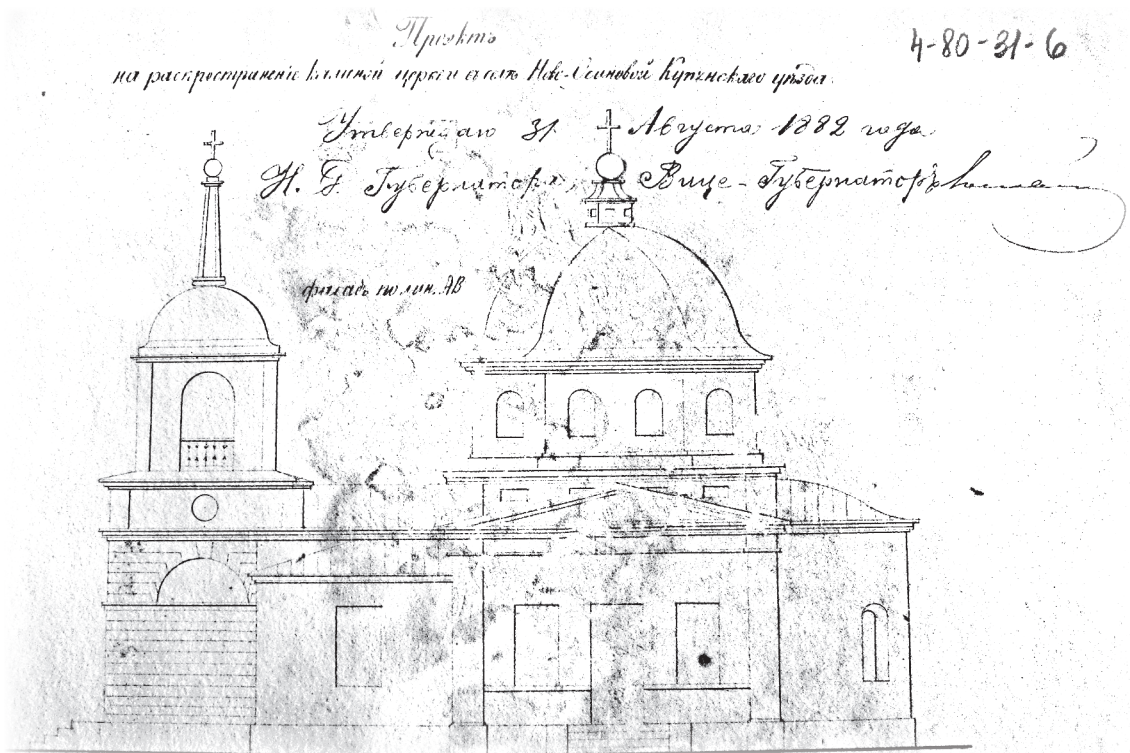 Проектъ
4-80-31-6
на распространеніе каменной церкви въ селѣ Ново-Осиновой Купянскаго уѣзда.
Утверждаю 31 Августа 1882 года
И. д. Губернатора, Вице-Губернаторъ
фасадъ по лин. АВ